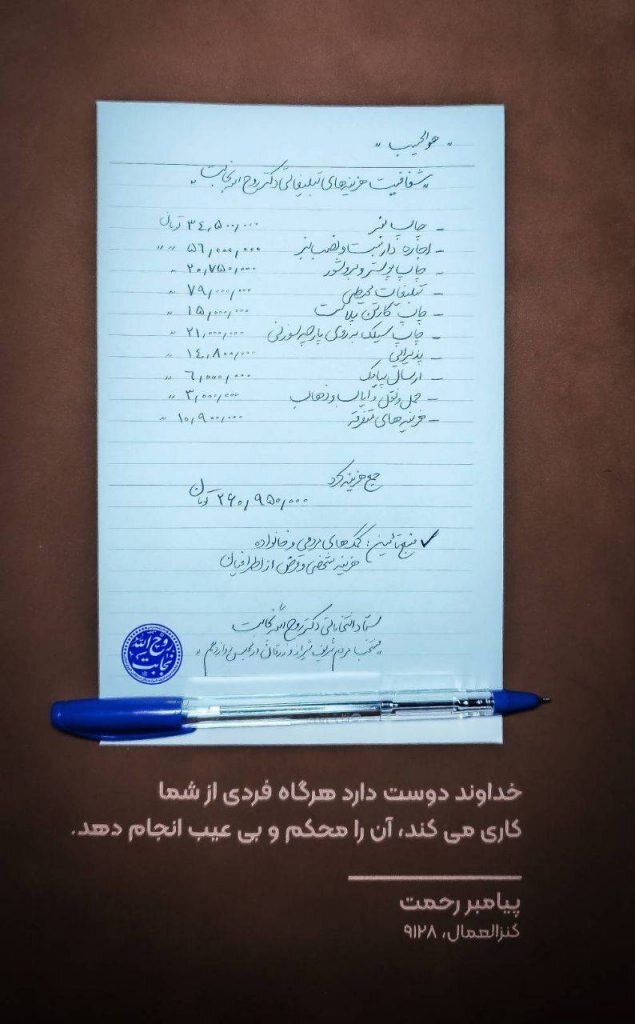 " هوالحبیب "
" شفافیت هزینه‌های تبلیغاتی دکتر روح الله نجابت "
- چاپ بنر ۳۴,۵۰۰,۰۰۰ تومان
- اجاره داربست و نصب بنر ۵۶,۰۰۰,۰۰۰ " "
- چاپ پوستر و بروشور ۲۰,۷۵۰,۰۰۰ "
- تبلیغات محیطی ۷۹,۰۰۰,۰۰۰ "
- چاپ کارتن پلاست ۱۵,۰۰۰,۰۰۰ "
- چاپ سیلک به روی پارچه سوزنی ۲۱,۰۰۰,۰۰۰ "
- پذیرایی ۱۴,۸۰۰,۰۰۰ "
- ارسال پیامک ۶,۰۰۰,۰۰۰ "
- حمل و نقل و ایاب و ذهاب ۳,۰۰۰,۰۰۰ "
- هزینه های متفرقه ۱۰,۹۰۰,۰۰۰ "
جمع هزینه کرد
۲۶۰,۹۵۰,۰۰۰ تومان
✓ منبع تأمین: کمک‌های مردمی و خانواده
هزینه شخصی و قرض از اطرافیان
ستاد انتخاباتی دکتر روح الله نجابت
منتخب مردم شریف شیراز و زرقان در مجلس یازدهم "
روح الله
نجابت
خداوند دوست دارد هرگاه فردی از شما
کاری می کند، آن را محکم و بی عیب انجام دهد.
پیامبر رحمت
کنزالعمال، ۹۱۲۸